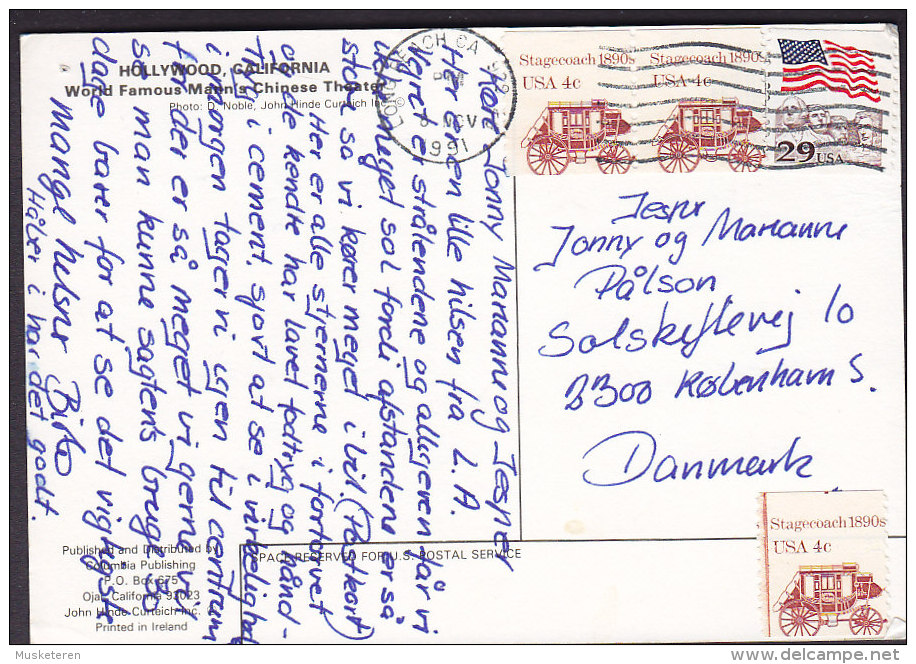 HOLLYWOOD, CALIFORNIA
World Famous Mann's Chinese Theater
Photo: D. Noble, John Hinde Curteich Inc.
LONG BEACH CA
PM
NOV
1991
Stagecoach 1890s
USA 4c
Stagecoach 1890s
USA 4c
29 USA
Kære Jonny Marianne og Jesper
Her er en lille hilsen fra L.A.
Vejret er strålendene og alligevel får vi
ikke meget sol fordi afstandene er så
store så vi kører meget i bil. (Postkort)
Her er alle stjernerne i fortovet
og de kendte har lavet fodtryg og hånd-
tryg i cement, sjovt at se i virkelighed
i morgen tager vi igen til centrum
for der er så meget vi gerne vil
se, man kunne sagtens bruge 30
dage bare for at se det vigtigste
mange helsner
Håber i har det godt.
Jesper
Jonny og Marianne
Pålson
Solskiftevej 10
2300 København S.
Danmark
Stagecoach 1890s
USA 4c
SPACE RESERVED FOR U.S. POSTAL SERVICE
Published and Distributed by
Columbia Publishing
P.O. Box 675
Ojai, California 93023
John Hinde Curteich Inc.
Printed in Ireland
Musketeren
www.delcampe.net